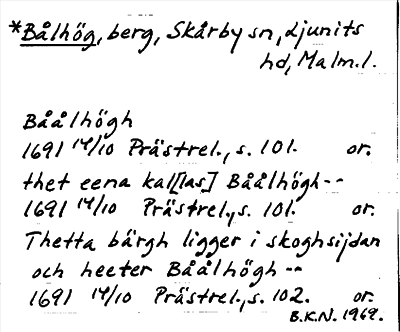 *Bålhög, berg, Skårby sn, Ljunits
hd, Malm.l.
Båålhögh
1691 14/10 Prästrel., s. 101. or.
thet eena kal[las] Båålhögh--
1691 14/10 Prästrel., s. 101. or.
Thetta bärgh ligger i skoghsijdan
och heeter Båålhögh --
1691 14/10 Prästrel., s. 102. or.
B.K.N. 1969.